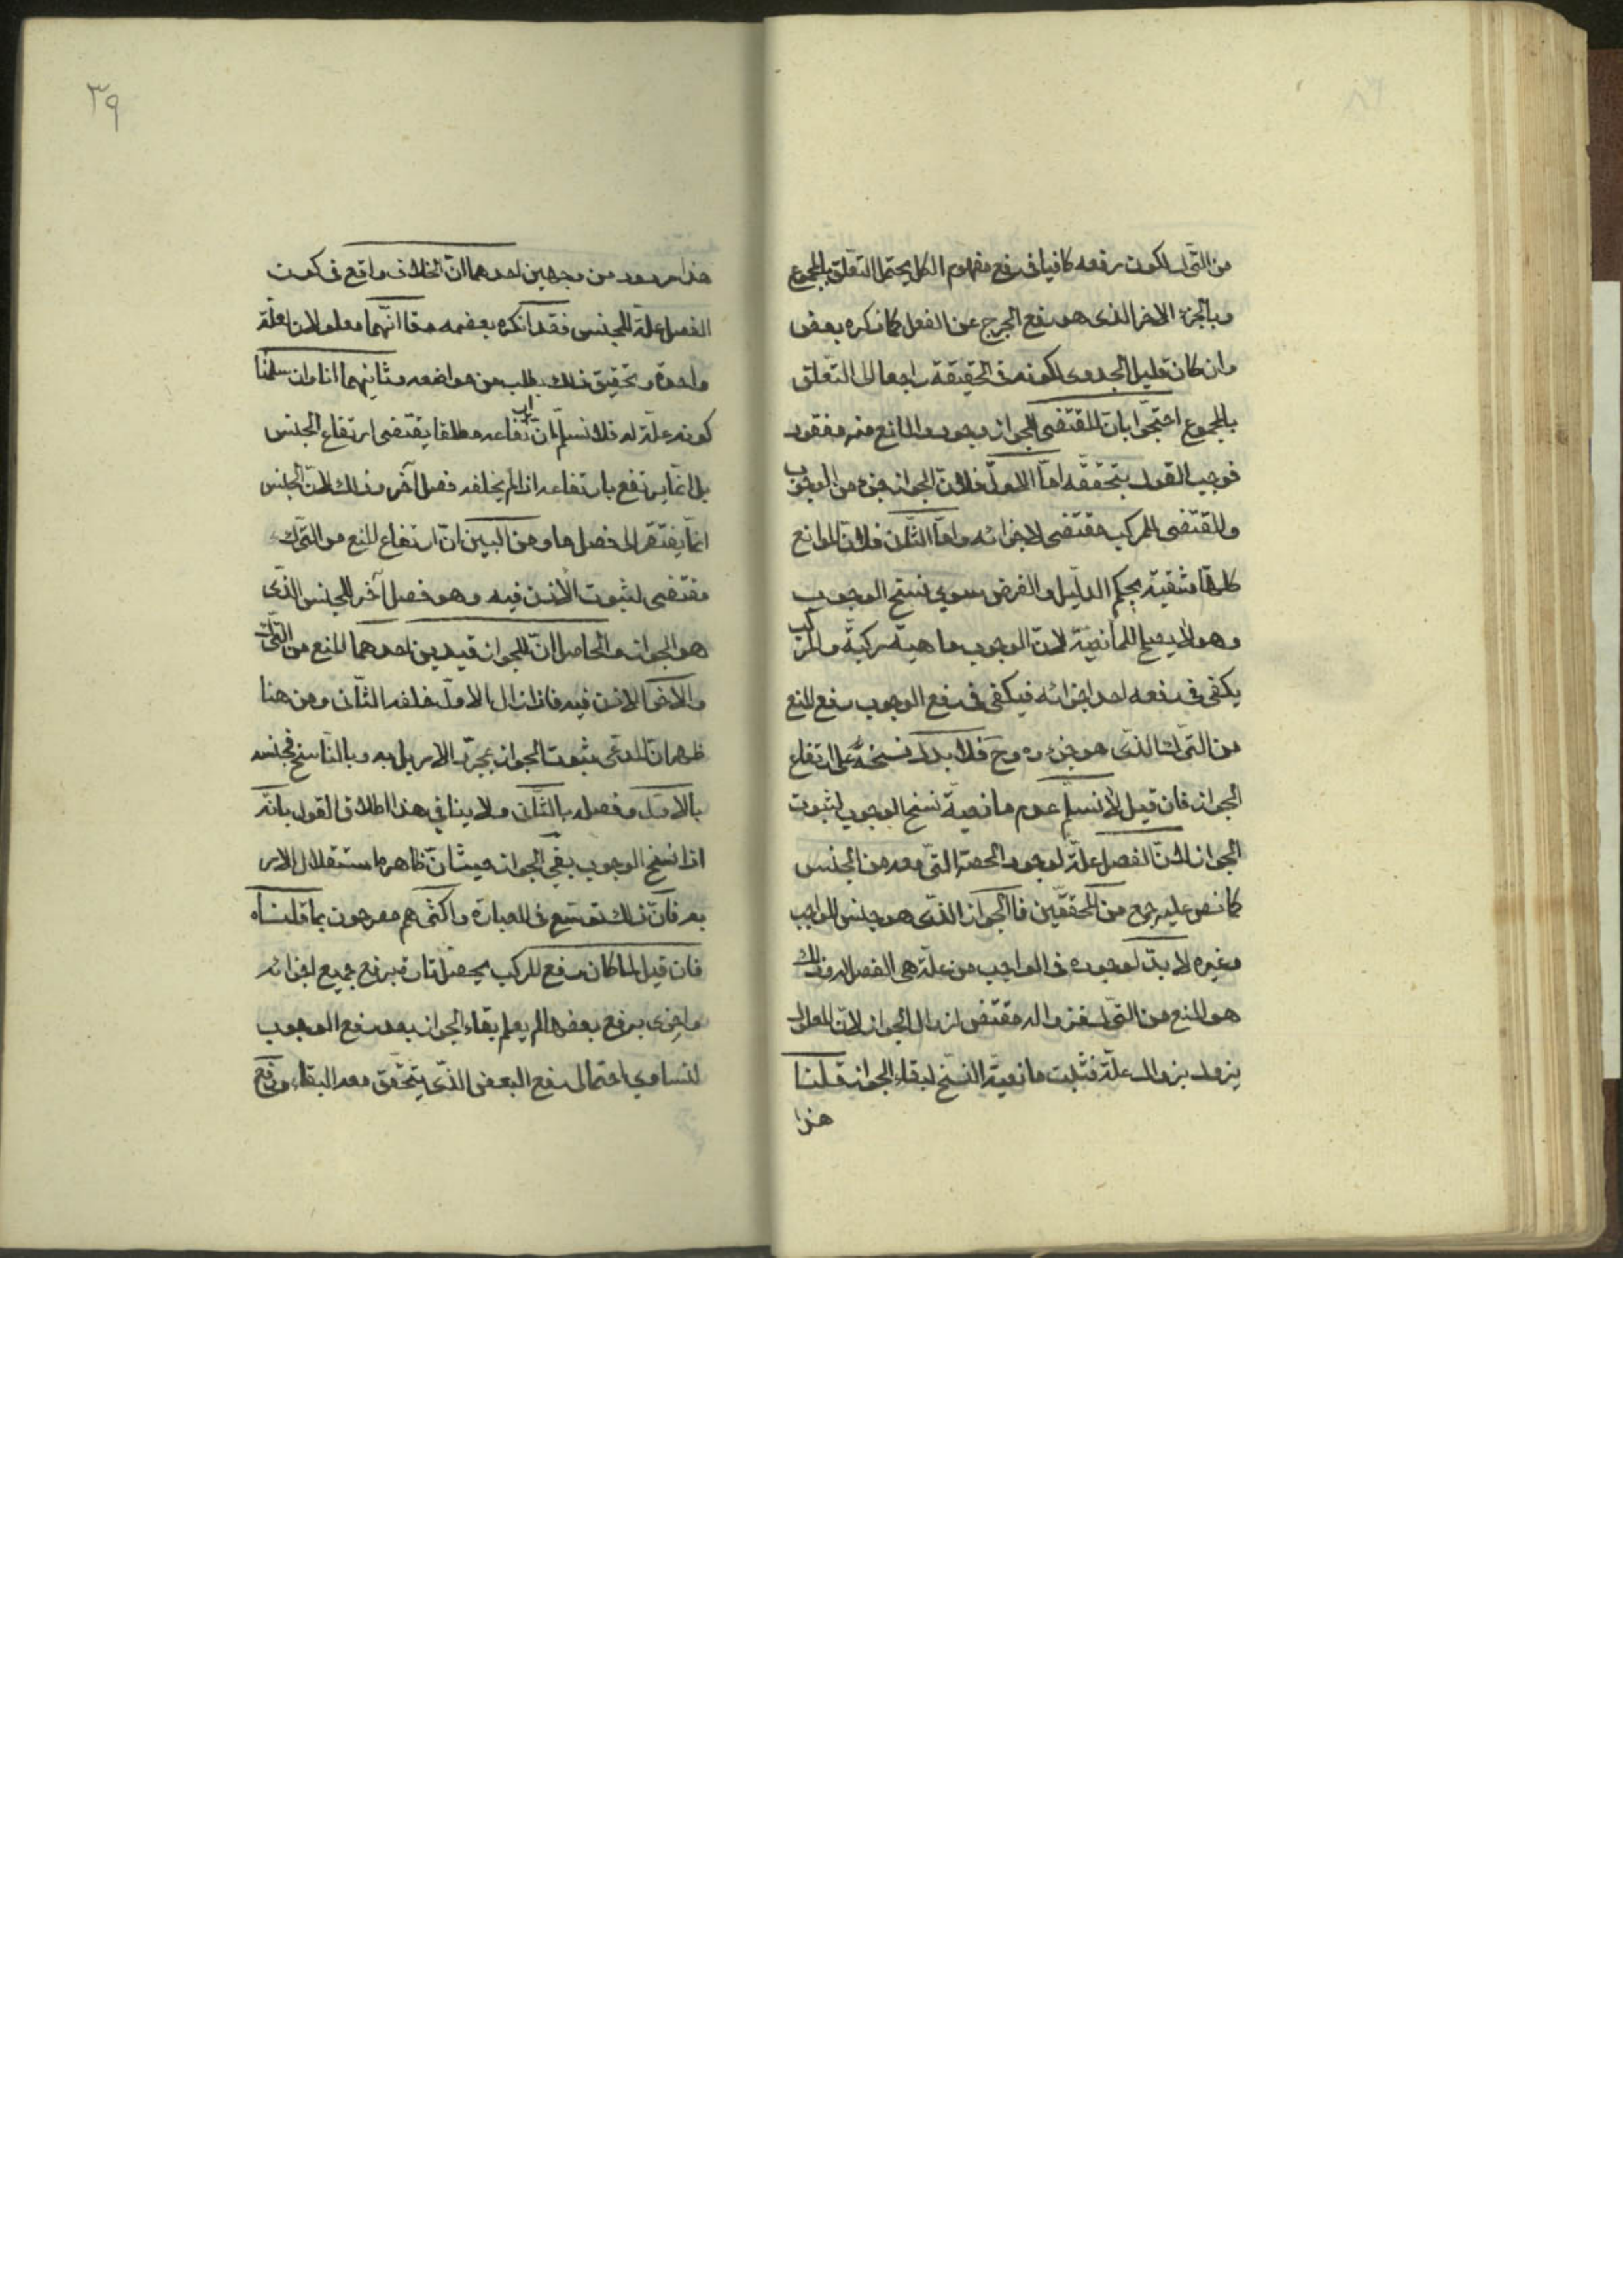 من الترك لكون رفعه كافيا في رفع مفهوم الكل يحتمل التعلق بالمجموع
وبالجزء الاخر الذى هو رفع الحرج عن الفعل كما ذكره بعض
وان كان قليل الجدوى لكونه في الحقيقة راجعا الى التعلق
بالمجموع احتجّوا بانّ المقتضى للجواز موجود والمانع منه مفقود
فوجب القول بتحققه امّا الاول فلانّ الجواز جزء من الوجوب
والمقتضى للمركب مقتضى لاجزائه وامّا الثّانى فلانّ الموانع
كلها منتفية بحكم الدليل والفرض سوى نسخ الوجوب
وهو لا يصلح للمانعيّة لانّ الوجوب ماهية مركبة والمركب
يكفى في رفعه احد اجزائه فيكفى في رفع الوجوب رفع المنع
من الترك الذّى هو جزءه وح فلا يدل نسخه على ارتفاع
الجواز فان قيل لا نسلّم عدم مانعيّة نسخ الوجوب لثبوت
الجواز لانّ الفصل علّة لوجود الحصة التّى معه من الجنس
كما نص عليه جمع من المحققين فالجواز الذّى هو جنس للواجب
وغيره لا بدّ لوجوده في الواجب من علّة هى الفصل له وذلك
هو المنع من الترك فزواله مقتض لزوال الجواز لانّ المعلول
يزول بزوال علّته فثبت مانعيّة النسخ لبقاء الجواز قلنا
هذا
٣٩
هذا مردود من وجهين احدهما انّ الخلاف واقع في كون
الفصل علّة للجنس فقد انكره بعضهم وقال انّهما معلولان لعلّة
واحدة وتحقيق ذلك يطلب من مواضعه وثانيهما انا وان سلمنا
كونه علّة له فلا نسلّم انّ ارتفاعه مطلقا يقتضى ارتفاع الجنس
بل انّما يرتفع بارتفاعه اذا لم يخلفه فصل آخر وذلك لانّ الجنس
انّما يفتقر الى فصل ما ومن البين انّ ارتفاع المنع من الترك
مقتضى لثبوت الاذن فيه وهو فصل آخر للجنس الذّى
هو الجواز والحاصل انّ للجواز قيدين احدهما المنع من الترك
والآخر الاذن فيه فاذا زال الاوّل خلفه الثّانى ومن هنا
ظهر انّه ليس المدعى ثبوت الجواز بمجرّد الامر بل به وبالنّاسخ فجنسه
بالاوّل وفصله بالثّانى ولا ينافي هذا اطلاق القول بانّه
اذا نسخ الوجوب بقى الجواز حيث انّ ظاهره استقلال الامر
به فانّ ذلك توسّع في العبارة واكثرهم مصرحون بما قلناه
فان قيل لما كان رفع المركب يحصل تارة برفع جميع اجزائه
واخرى برفع بعضها لم يعلم بقاء الجواز بعد رفع الوجوب
لتساوى احتمال رفع البعض الذّى يتحقق معه البقاء ورفع